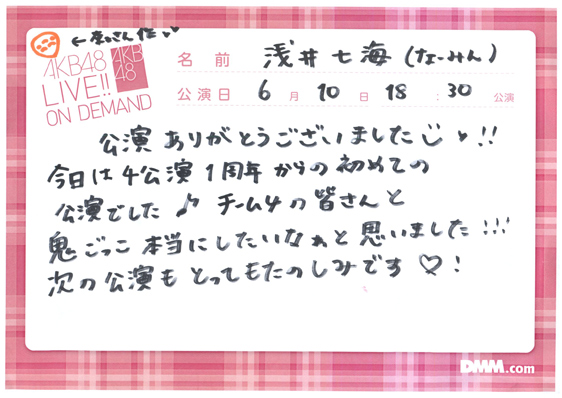 AKB48
LIVE!!
ON DEMAND
AKB
48
名前 浅井七海(なーみん)
公演日 6月10日 18:30 公演
公演ありがとうございました♥!!
今日は4公演1周年からの初めての
公演でした♪ チーム4の皆さんと
鬼ごっこ本当にしたいなぁと思いました!!!
次の公演もとってもたのしみです♡!
DMM.com